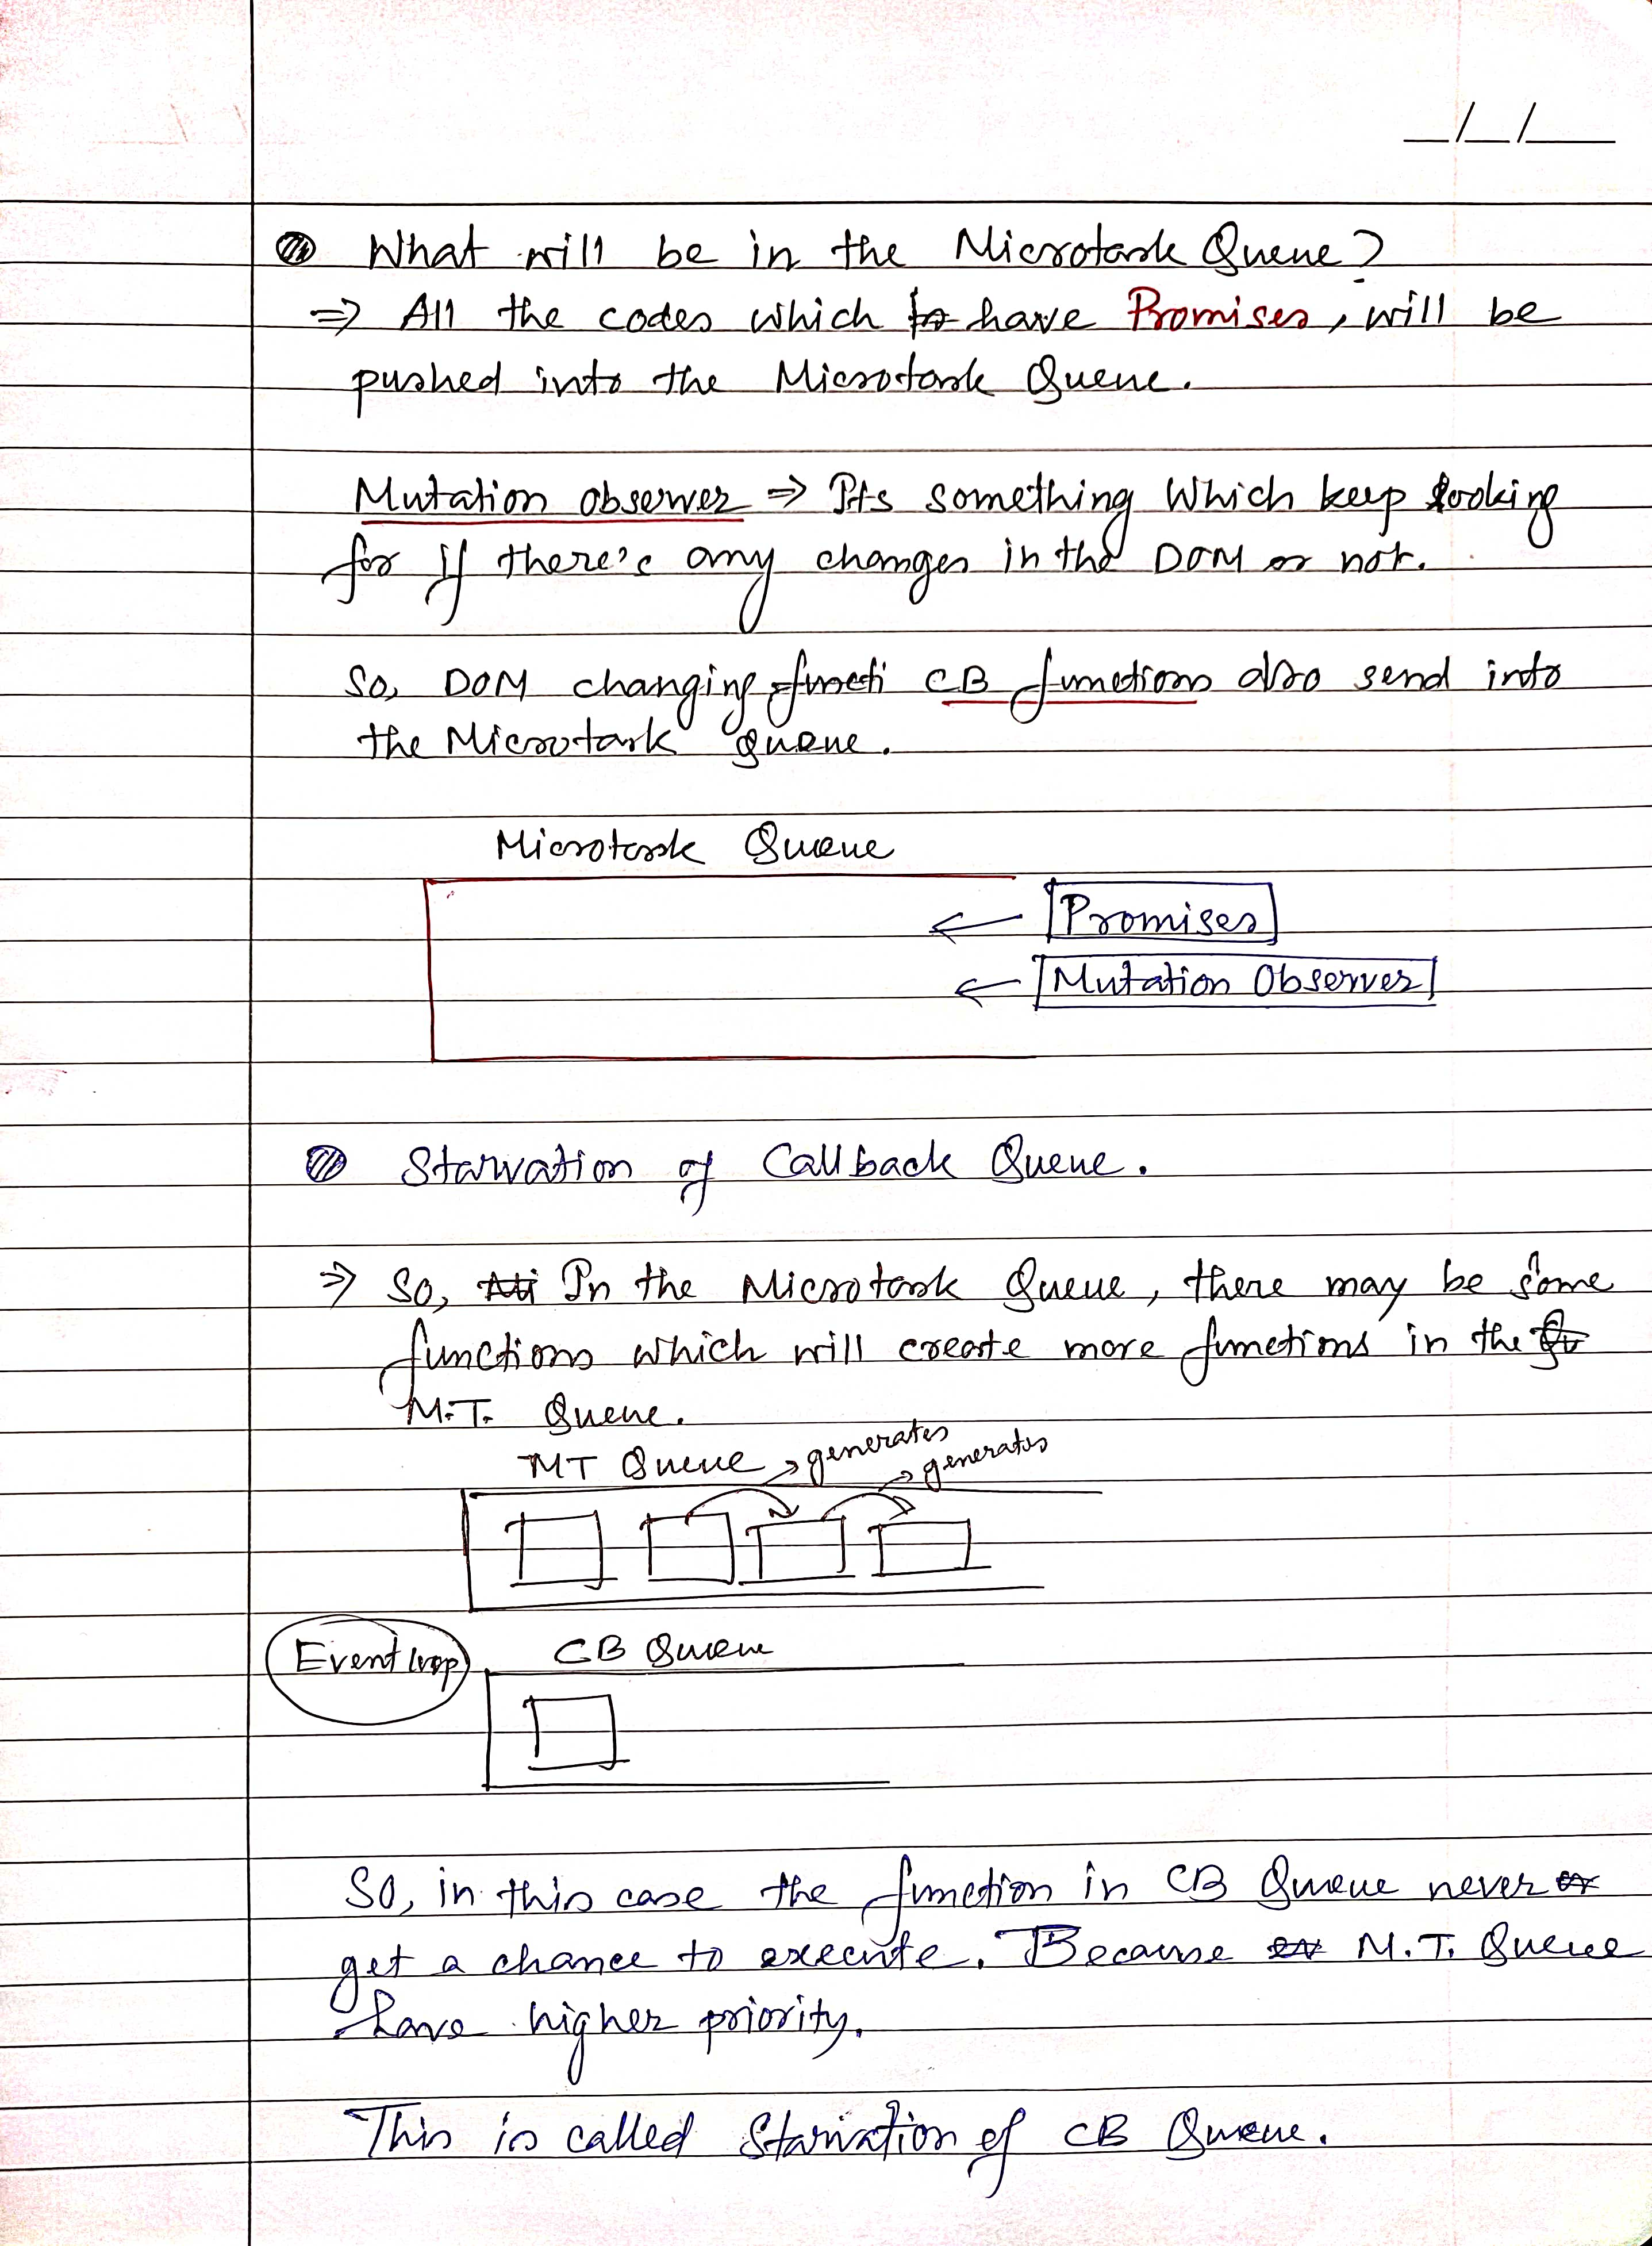 _/_/___
What will be in the Microtask Queue?
⇒ All the codes which have Promises, will be
pushed into the Microtask Queue.
Mutation observer ⇒ Its something which keep looking
for if there's any changes in the DOM or not.
So, DOM changing functi CB functions also send into
the Microtask queue.
Microtask Queue
← Promises
← Mutation Observer
Starvation of Callback Queue.
⇒ So, In the Microtask Queue, there may be some
functions which will create more functions in the
M.T. Queue.
MT Queue → generates → generates
Event loop
CB Queue
So, in this case the function in CB Queue never
get a chance to execute. Because M.T. Queue
have higher priority.
This is called Starvation of CB Queue.